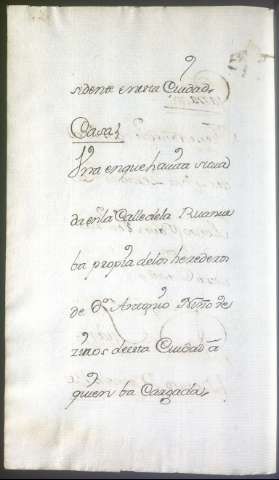 sidente en esta Ciudad
Casas
Una en que havita situa
da en la Calle de la Rua nue
ba propia de los herederos
de Dn Antonio Nuño ve
zinos de esta Ciudad á
quien ba Cargada